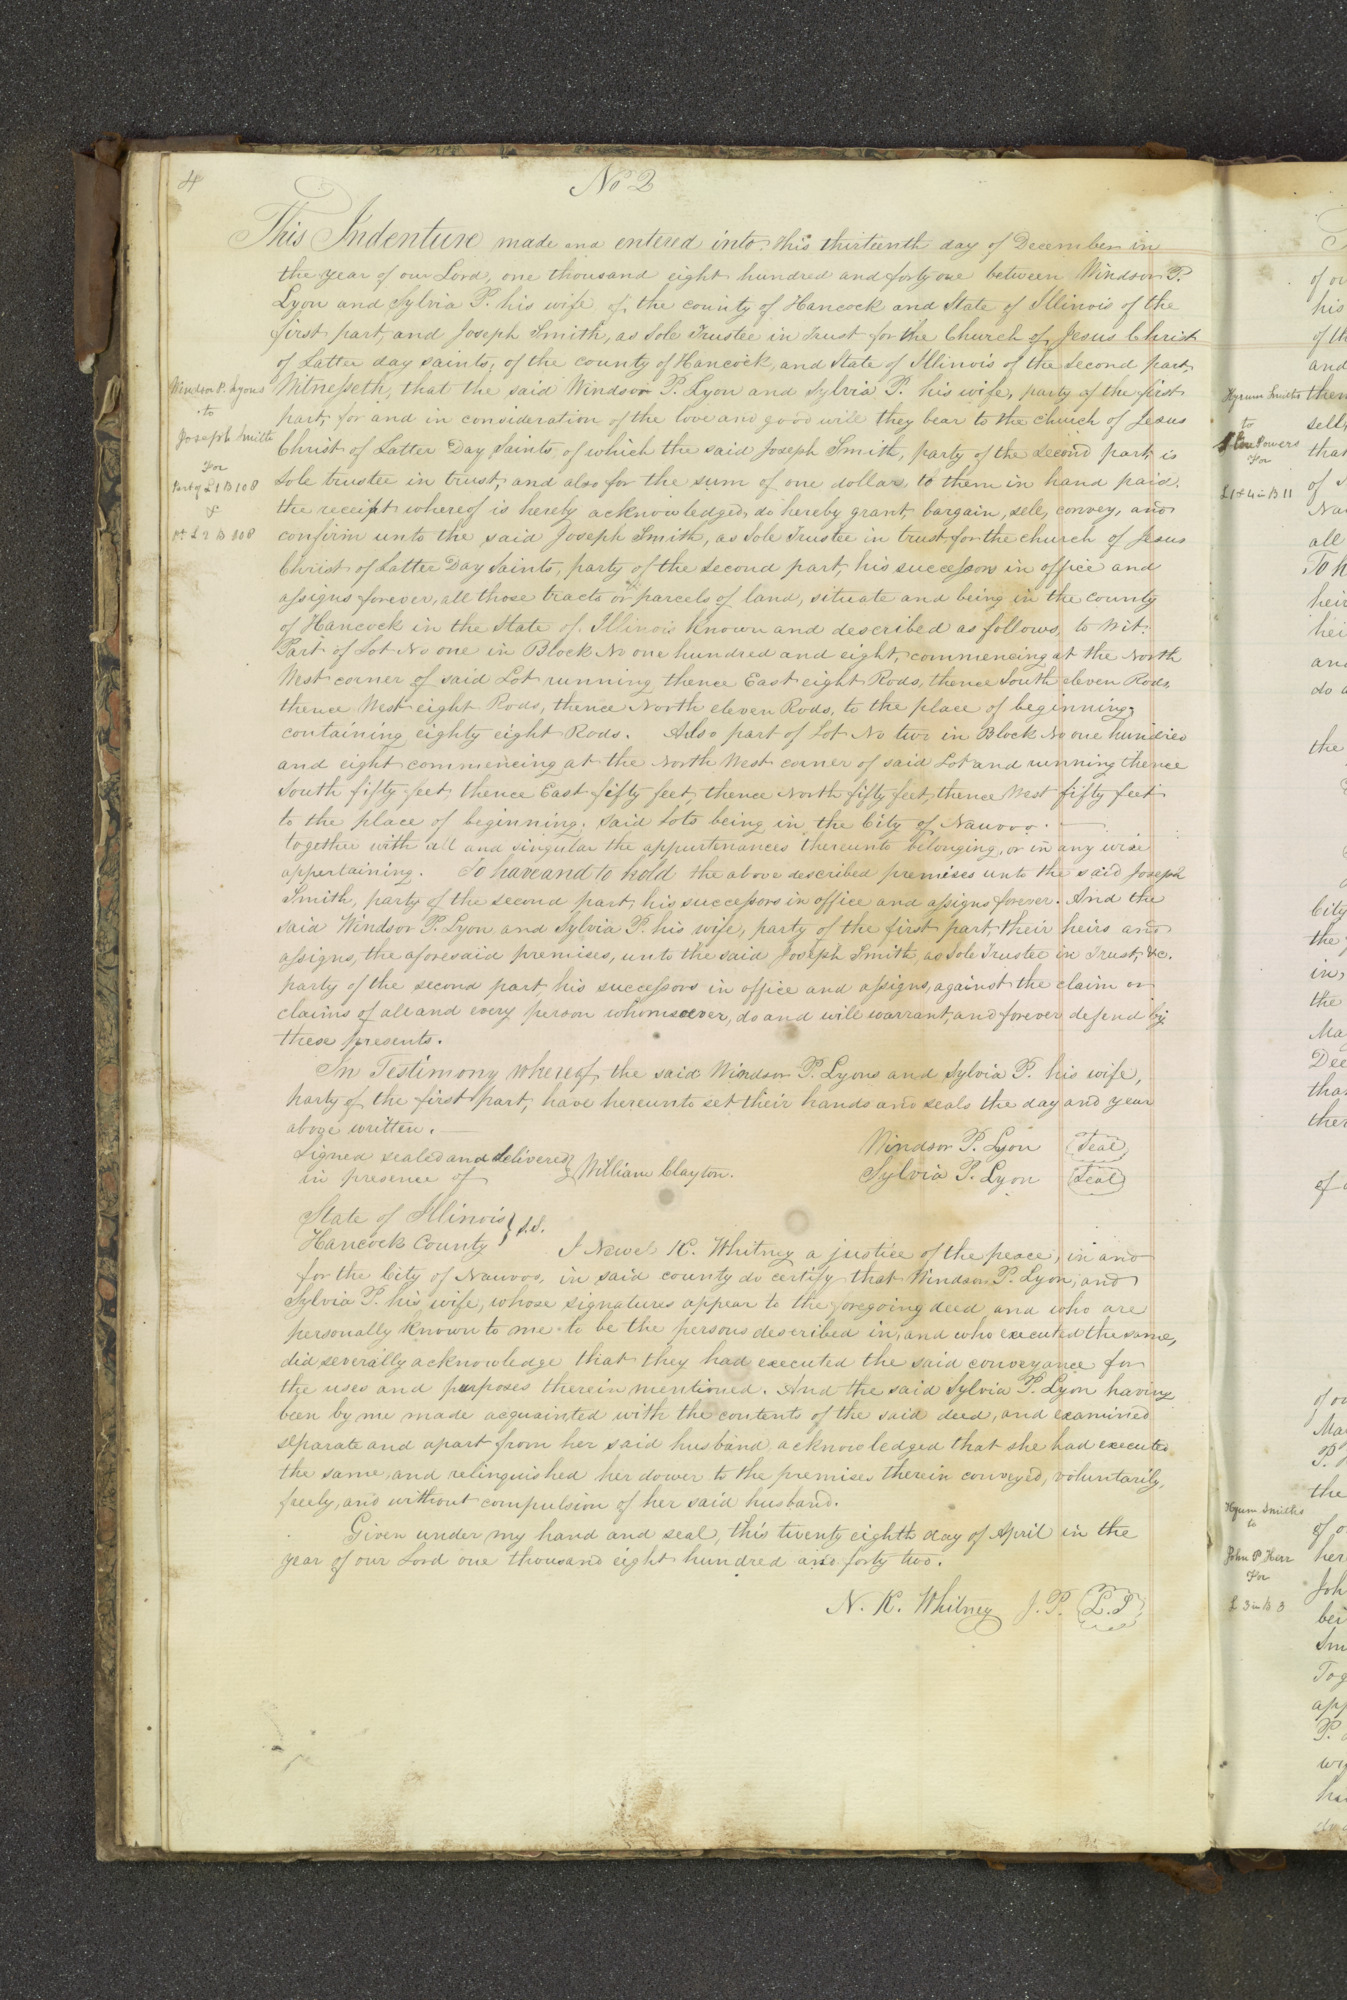 4
No 2
This Indenture made and entered into this thirteenth day of December in
the year of our Lord, one thousand eight hundred and forty one between Windsor P.
Lyon and Sylvia P. his wife of the county of Hancock and State of Illinois of the
first part, and Joseph Smith, as Sole Trustee in Trust for the Church of Jesus Christ
of Latter day saints, of the county of Hancock, and State of Illinois of the second part,
Witnesseth, that the said Windsor P. Lyon and Sylvia P. his wife, party of the first
part, for and in consideration of the love and good will they bear to the church of Jesus
Christ of Latter Day Saints, of which the said Joseph Smith, party of the second part, is
Sole trustee in trust, and also for the sum of one dollar, to them in hand paid,
the receipt whereof is hereby acknowledged, do hereby grant, bargain, sell, convey, and
confirm unto the said Joseph Smith, as Sole Trustee in trust for the church of Jesus
Christ of Latter Day Saints, party of the second part, his successors in office and
assigns forever, all those tracts or parcels of land, situate and being in the county
of Hancock in the State of Illinois Known and described as follows, to Wit:
Part of Lot No one in Block No one hundred and eight, commencing at the North
West corner of said Lot running thence East eight Rods, thence South eleven Rods,
thence West eight Rods, thence North eleven Rods, to the place of beginning,
containing eighty eight Rods. Also part of Lot No two in Block No one hundred
and eight commencing at the North West corner of said Lot and running thence
South fifty feet, thence East fifty feet, thence North fifty feet, thence West fifty feet
to the place of beginning. Said Lots being in the City of Nauvoo.
together with all and singular the appurtenances thereunto belonging, or in any wise
appertaining. To have and to hold the above described premises unto the said Joseph
Smith, party of the second part, his successors in office and assigns forever. And the
said Windsor P. Lyon and Sylvia P. his wife, party of the first part, their heirs and
assigns, the aforesaid premises, unto the said Joseph Smith, as Sole Trustee in Trust, &c.
party of the second part his successors in office and assigns, against the claim or
claims of all and every person whomsoever, do and will warrant, and forever defend by
these presents.
In Testimony whereof, the said Windsor P. Lyons and Sylvia P. his wife,
party of the first part, have hereunto set their hands and seals the day and year
above written.
Signed sealed and delivered
in presence of William Clayton.
Windsor P. Lyon Seal
Sylvia P. Lyon Seal
State of Illinois
Hancock County S.S.
I Newel K. Whitney a justice of the peace, in and
for the City of Nauvoo, in said county do certify that Windsor P. Lyon, and
Sylvia P. his wife, whose signatures appear to the foregoing deed and who are
personally known to me to be the persons described in, and who executed the same,
did severally acknowledge that they had executed the said conveyance for
the uses and purposes therein mentioned. And the said Sylvia P. Lyon having
been by me made acquainted with the contents of the said deed, and examined
separate and apart from her said husband, acknowledged that she had executed
the same, and relinquished her dower to the premises therein conveyed, voluntarily,
freely, and without compulsion of her said husband.
Given under my hand and seal, this twenty eighth day of April in the
year of our Lord one thousand eight hundred and forty two.
N. K. Whitney J. P. L.S
Windsor P. Lyons
to
Joseph Smith
For
Part of L 1 B 108
&
pt L 2 B 108
Hyrum Smiths
to
Powers
For
L 1 & 4 in B 11
Hyrum Smiths
to
John P Herr
For
L 3 in B 3
his
of th
and
then
sell,
that
of
Nau
all
To h
heir
hei
and
do a
the
City
the
in,
the
Ma
Dec
tha
ther
of
of ou
Ma
P.
the
of o
her
Joh
bei
Smi
Tog
app
P.
wi
ha